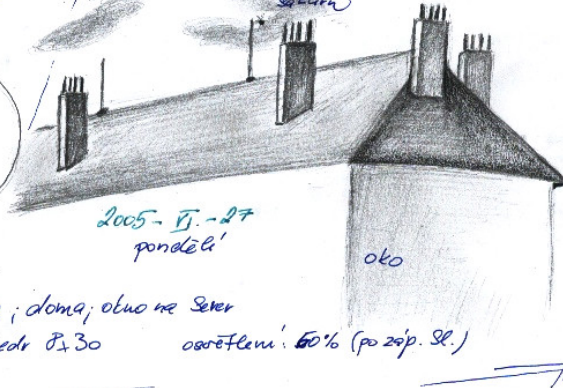 Saturn
2005-VI.-27
pondělí
oko
; doma; okno na Sever
edr 8x30 osvětlení: 60% (po záp. Sl.)